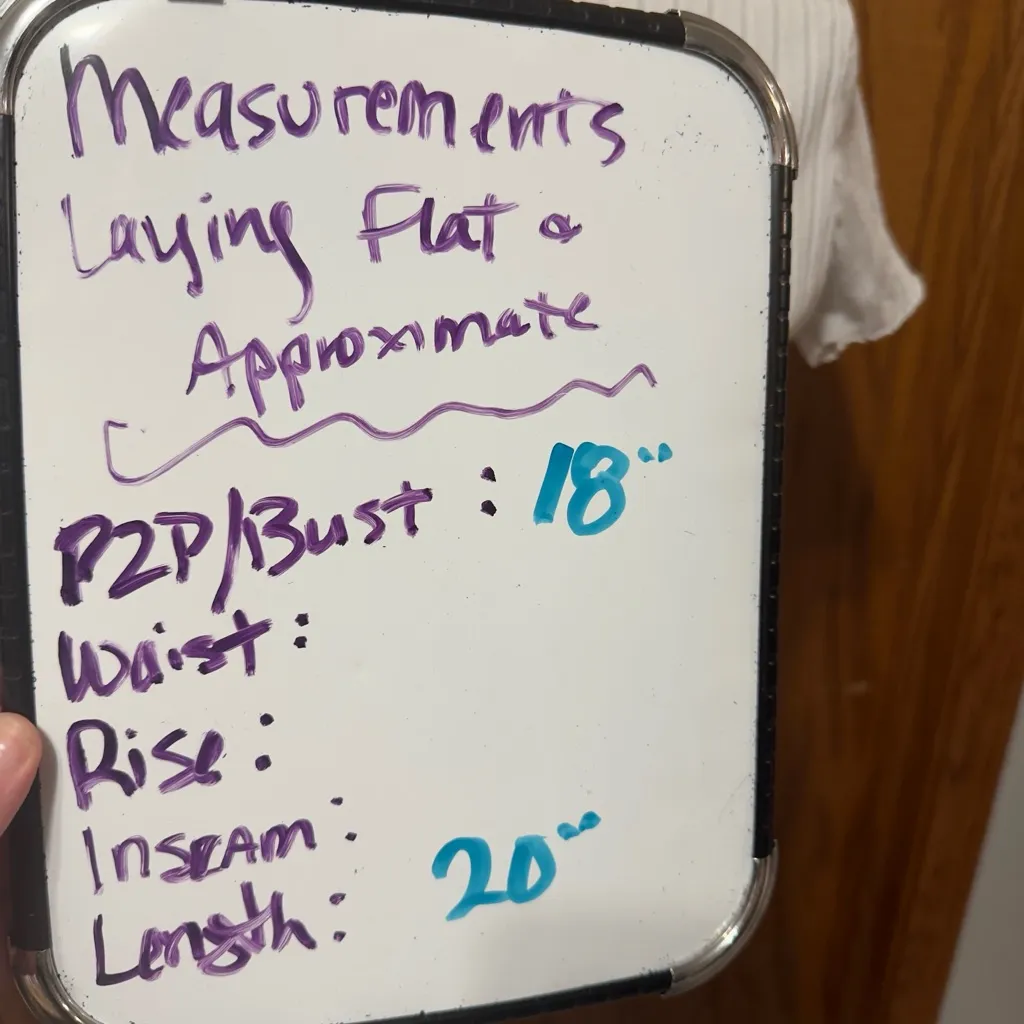 Measurements
Laying Flat &
Approximate
P2P/Bust : 18"
Waist :
Rise :
Inseam :
Length : 20"